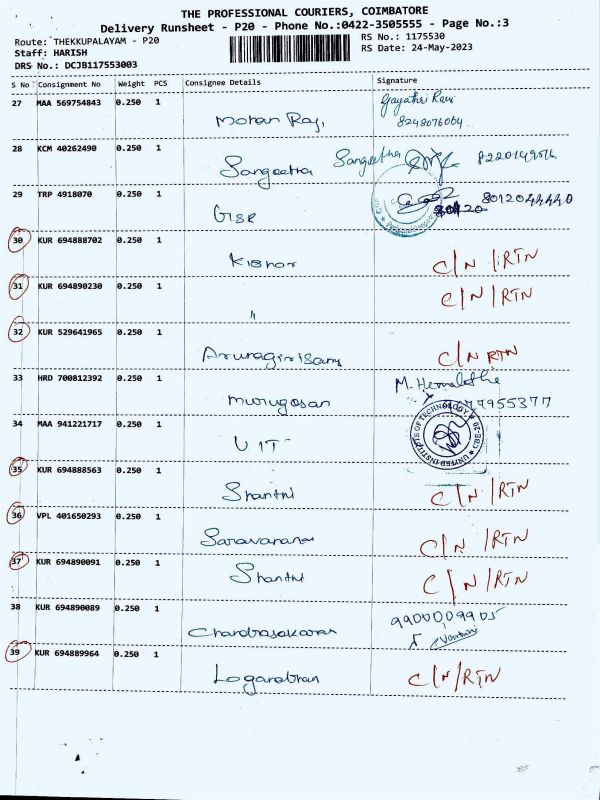 THE PROFESSIONAL COURIERS, COIMBATORE
Delivery Runsheet - P20 - Phone No.:0422-3505555 - Page No.:3
Route: THEKKUPALAYAM - P20 RS No.: 1175530
Staff: HARISH RS Date: 24-May-2023
DRS No.: DCJB117553003
S No Consignment No Weight PCS Consignee Details Signature
27 MAA 569754843 0.250 1 Gayathri
Mohan Raj, 8248076064
28 KCM 40262490 0.250 1
Sangeetha Sangeetha
29 TRP 4918070 0.250 1 8012044440
30 KUR 694888702 0.250 1
Kishor C/N /RTN
31 KUR 694890230 0.250 1 C/N/RTN
"
32 KUR 529641965 0.250 1
C/N RTN
33 HRD 700812392 0.250 1 M.
Murugosan 77955377
34 MAA 941221717 0.250 1 UNITED INSTITUTE OF TECHNOLOGY
UIT
35 KUR 694888563 0.250 1
Shanthi C/N/RTN
36 VPL 401650293 0.250 1
C/N /RTN
37 KUR 694890091 0.250 1
Shanthi C/N/RTN
38 KUR 694890089 0.250 1 9900009905
Chandrasakaran
39 KUR 694889964 0.250 1
Loganathan C/N/RTN